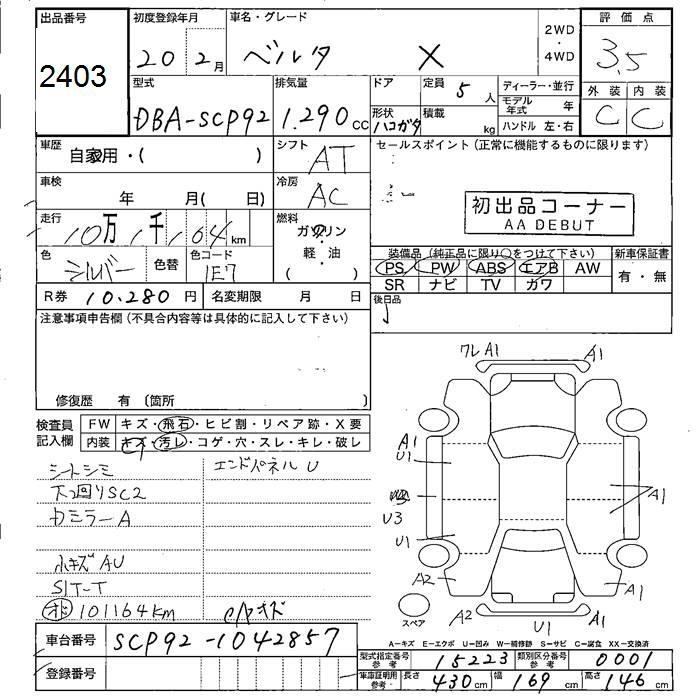 出品番号
2403
初度登録年月
20 2月
車名・グレード
ベルタ X
2WD
・
4WD
評価点
3.5
外装 内装
C C
型式
DBA-SCP92
排気量
1.290 cc
ドア
定員 5 人
形状
ハコガタ
積載
kg
ディーラー・並行
モデル年式 年
ハンドル 左・右
車歴
自家用・( )
シフト
AT
車検
年 月( 日)
冷房
AC
走行
10万 1千 164 km
燃料
ガソリン
・
軽・油
( )
色
シルバー
色替
色コード
1E7
R券 10.280 円
名変期限 月 日
セールスポイント(正常に機能するものに限ります)
初出品コーナー
AA DEBUT
装備品(純正品に限り○をつけて下さい)
PS PW ABS エアB AW
SR ナビ TV ガワ
新車保証書
有・無
後日品
注意事項申告欄(不具合内容等は具体的に記入して下さい)
修復歴 有〔箇所 〕
検査員
記入欄
FW キズ・飛石・ヒビ割・リペア跡・X要
内装 キズ・汚レ・コゲ・穴・スレ・キレ・破レ
シートシミ
下回りSC2
カミラーA
小キズ AU
SIT-T
101164KM
エンドパネル U
ワレ A1
A1
A1
U1
U3
U1
A2
A2
U1
A1
A1
A1
スペア
A-キズ E-エクボ U-凹み W-補修跡 S-サビ C-腐食 XX-交換済
車台番号 SCP92-1042857
登録番号
型式指定番号 参考 15223
類別区分番号 参考 0001
車庫証明用 参考 長さ 430 cm 幅 169 cm 高さ 146 cm